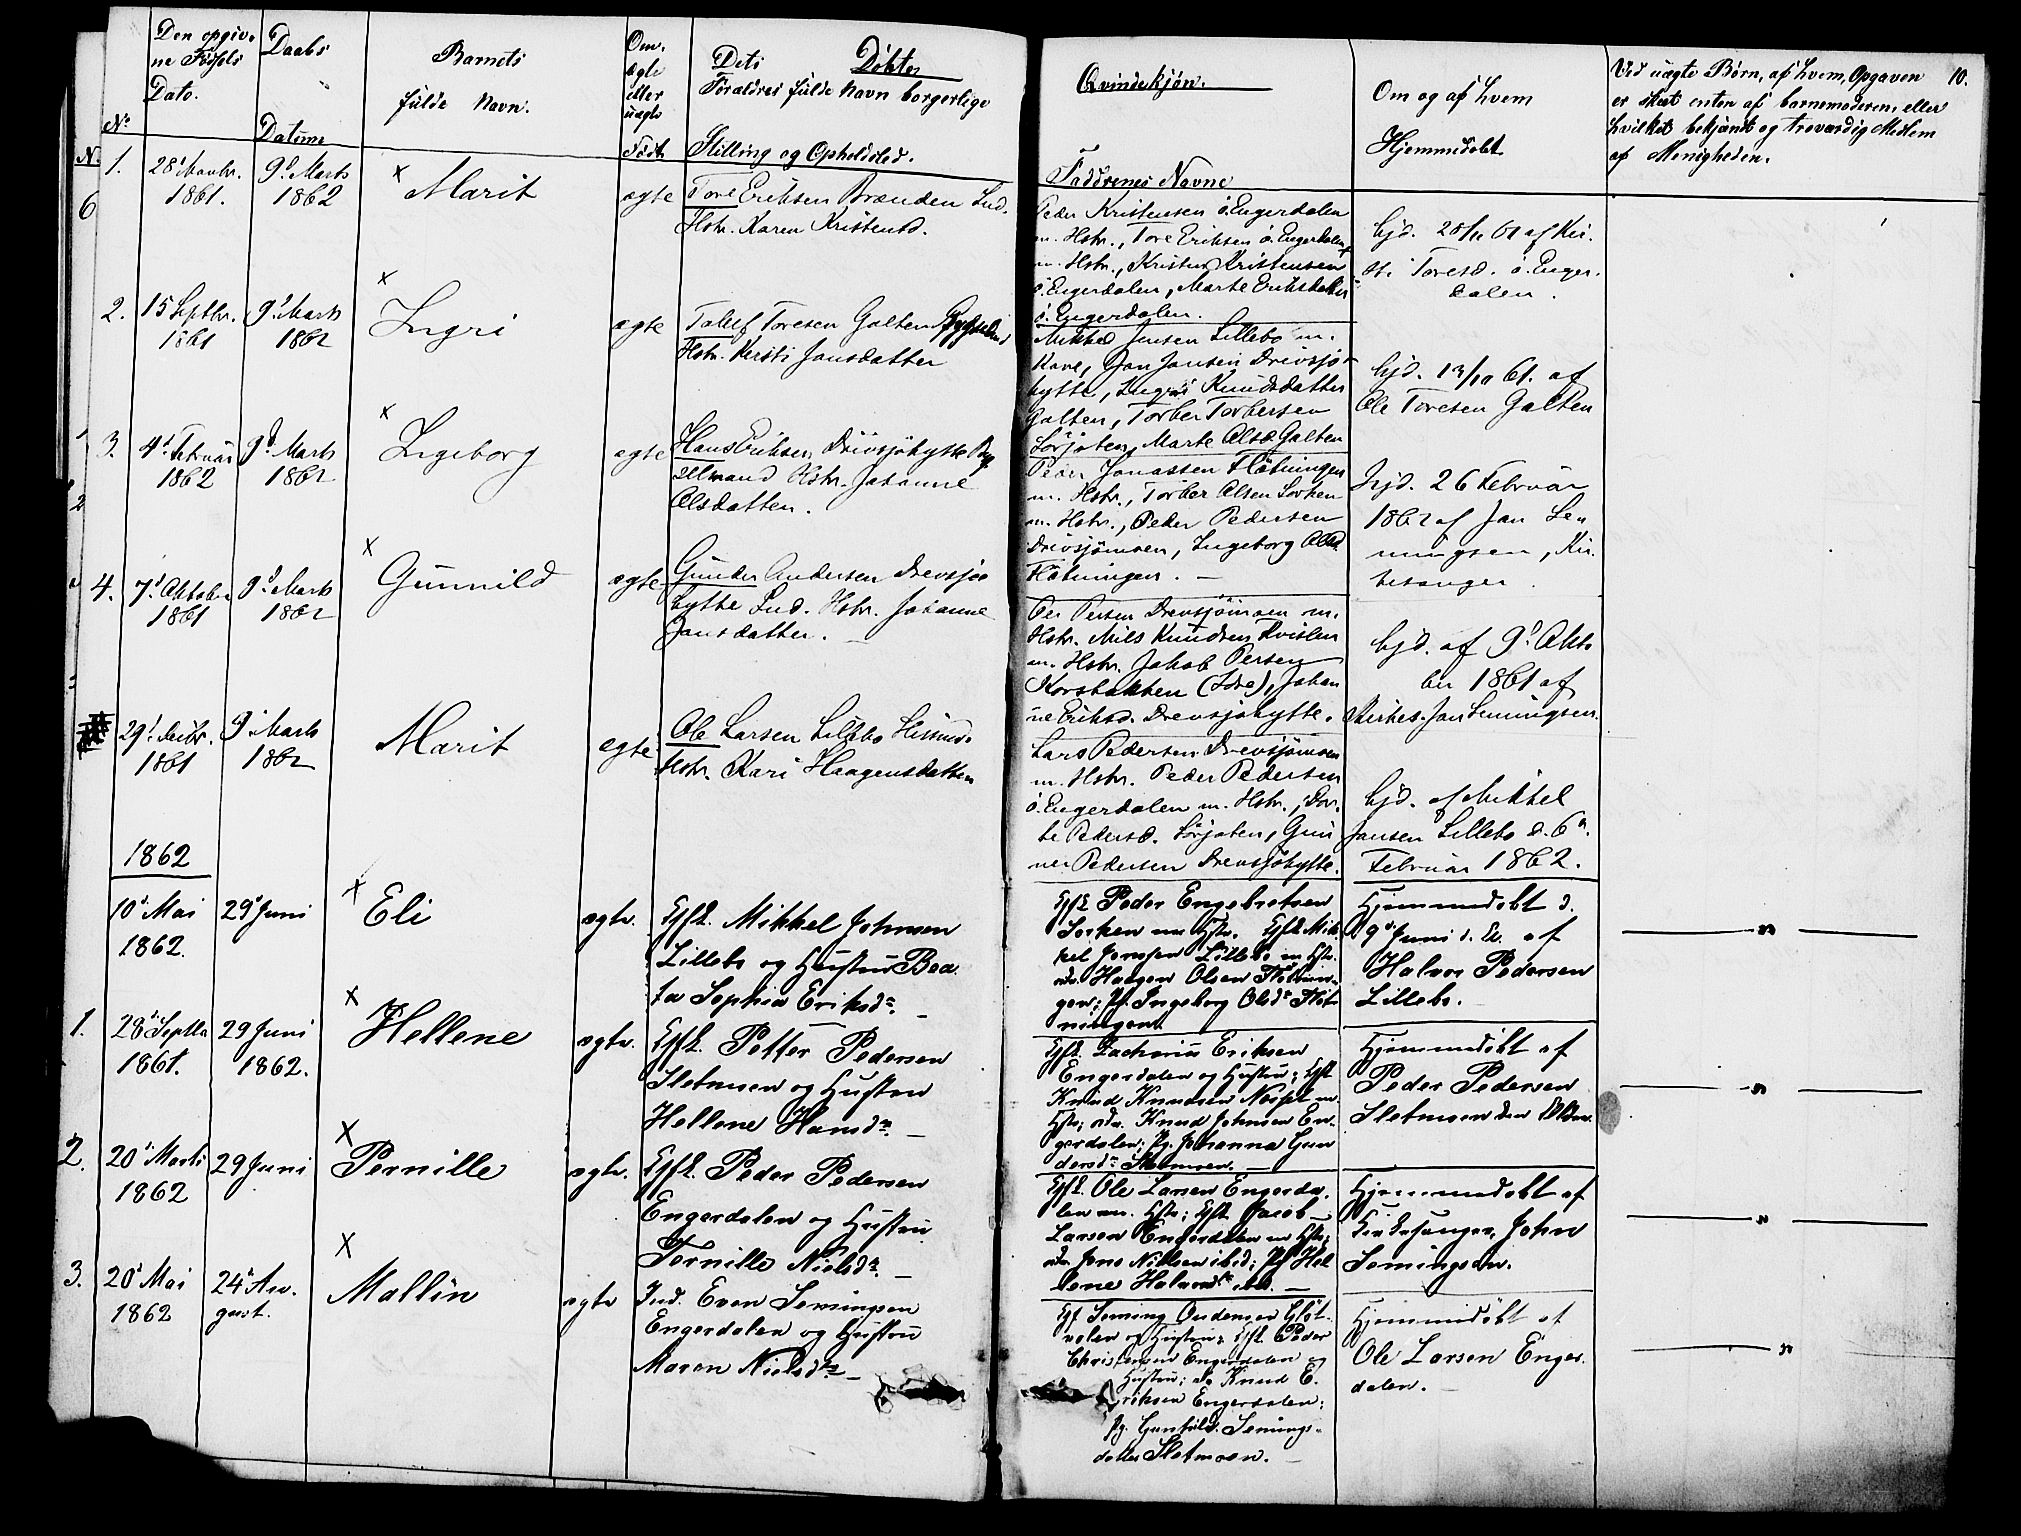 Den opgiv-
ne Fødsels
Dato.
Daabs
Datum
Barnets
fulde Navn.
Om
ægte
eller
uægte
Født
Dets Døbte
Forældres fulde Navn borgerlige
Stilling og Opholdsted.
Qvindekjøn.
Faddrenes Navne
Om og af hvem
Hjemmedøbt
Ved uægte Børn, af hvem, Opgaven
er skeet enten af barnemoderen, eller
hvilket bekjendt og troværdig Medlem
af Menigheden.
10.
No
N.
6
1.
28' Novbr.
1861.
9' Marts
1862
x Marit
ægte
Tore Eriksen Brænden Ind.
Hstr. Karen Kristensd.
Peder Kristensen ö. Engerdalen
m. Hstr., Tore Eriksen ö. Engerdalen
m. Hstr., Kristen Kristensen
ö. Engerdalen, Marte Eriksdatter
ö. Engerdalen.
hjd. 28/11 61 af Kir.
st. Toresd. ö. Enger-
dalen.
2.
15 Septbr.
1861
9' Marts
1862
x
Ingri
ægte
Tolef Toresen Galten
Hstr. Kersti Jansdatter
Mikkel Jensen Lillebo m.
Kone, Jon Jansen Drevsjø-
hytte, Ingri Knudsdatter
Galten, Torber Torbersen
Sørjoten, Marte Olsd. Galten
hjd. 13/10 61. af
Ole Toresen Galten
3.
4' Februar
1862
9' Marts
1862
x
Ingeborg
ægte
Hans Eriksen Drevsjøhytte
Hstr. Johanne
Olsdatter.
Peder Jonassen Fløtningen
m. Hstr., Torber Olsen Sorken
m. Hstr., Peder Pedersen
Drevsjømoen, Ingeborg Olsd.
Fløtningen.
hjd. 26 Februar
1862 af Jan Se-
mingsen, Kir-
kesanger
4.
7' Oktober
1861
9' Marts
1862
x
Gunnild
ægte
Gunder Andersen Drevsjø
hytte Ind. Hstr. Johanne
Jansdatter.
Per Persen Drevsjømoen m.
Hstr. Nils Knudsen Kvislen
m. Hstr. Jakob Persen
Korsbakken (Idre), Johan
ne Eriksd. Drevsjøhytte.
hjd. af 9' Okto
ber 1861 af
Kirkes. Jan Semingsen.
29' Decbr.
1861
9' Marts
1862
Marit
ægte
Ole Larsen Lillebo Husmd.
Hstr. Kari Haagensdatter
Lars Pedersen Drevsjømoen
m. Hstr. Peder Pedersen
ö. Engerdalen m. Hstr., Dor-
te Pedersd. Sørjoten, Gun
ner Pedersen Drevsjøhytte.
hjd. af Mikkel
Jansen Lillebo d. 6'
Februar 1862.
1862
10' Mai
1862.
29' Juni
x
Eli
ægte.
Gift. Mikkel Johnsen
Lillebo og Hustru Bea
ta Sophia Eriksdr.
Gift Peder Engebretsen
Sorken m Hstr. Gift Mik
kel Jonsen Lillebo m Hstr.
Haagen Olsen Fløtnin-
gen; Pg. Ingeborg Olsdr Fløt
ningen.
Hjemmedøbt d.
9' Juni af
Halvor Pedersen
Lillebo.
1.
28' Septbr
1861.
29 Juni
1862.
x
Hellene
ægte.
Gift. Petter Pedersen
Sletmoen og Hustru
Hellene Hansdr.
Gift. Zacharias Eriksen
Engerdalen og Hustru; Gift
Knud Knudsen m
Hstr; Knud Johnsen En-
gerdalen; Pg. Johanna Gun
dersdr Sletmoen.
Hjemmedøbt af
Peder Pedersen
Sletmoen den
2.
20' Marts
1862
29 Juni
x
Pernille
ægte.
Gift. Peder Pedersen
Engerdalen og Hustru
Pernille Nielsdr.
Gift. Ole Larsen Engerda-
len m. Hstr; Gift Jacob
Larsen Engerdalen m Hstr;
Jens Nielsen ibid; Pg Hel
lene Halvorsdr ibid.
Hjemmedøbt af
Kirkesanger John
Semingsen.
3.
20' Mai
1862
24' Au-
gust.
x
Mallin
ægte
Ind. Even Semingsen
Engerdalen og Hustru
Maren Nielsdr.
Gift Seming Endresen
og Hustru; Gift. Peder
Christensen Engerdalen og
Hustru; Knud E-
riksen Engerdalen;
Pg. Gunhild Semings-
datter Sletmoen.
Hjemmedøbt af
Ole Larsen Enger-
dalen.